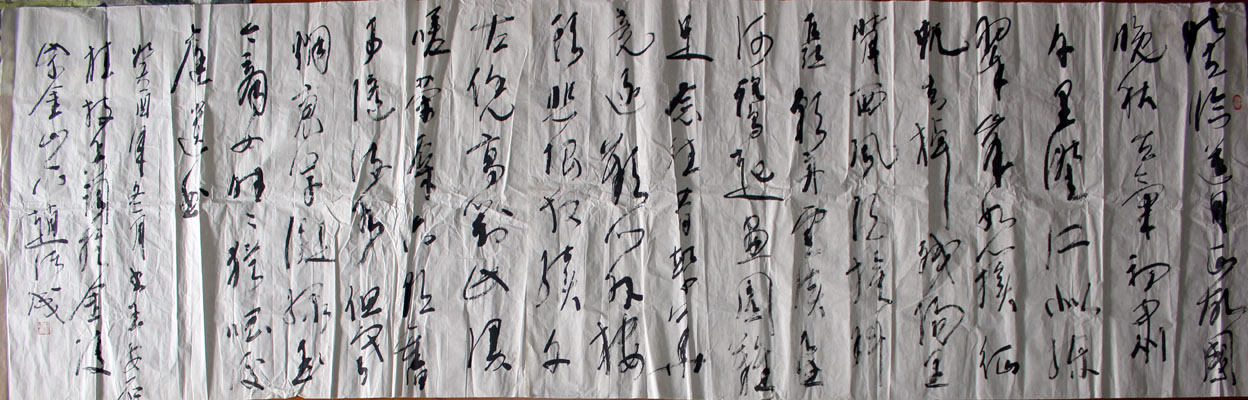 登临送目正故国
晚秋天气初肃
千里澄江似练
翠峰如簇征
帆去棹残阳里
背西风酒旗斜
矗彩舟云淡星
河鹭起画图难
足念往昔繁华
竞逐叹门外楼
头悲恨相续千
古凭高对此漫
嗟荣辱六朝旧
事随流水但寒
烟衰草凝绿至
今商女时々犹唱后
庭遗曲
癸酉年冬月书王安石
桂枝香词于金陵
紫金山下赵